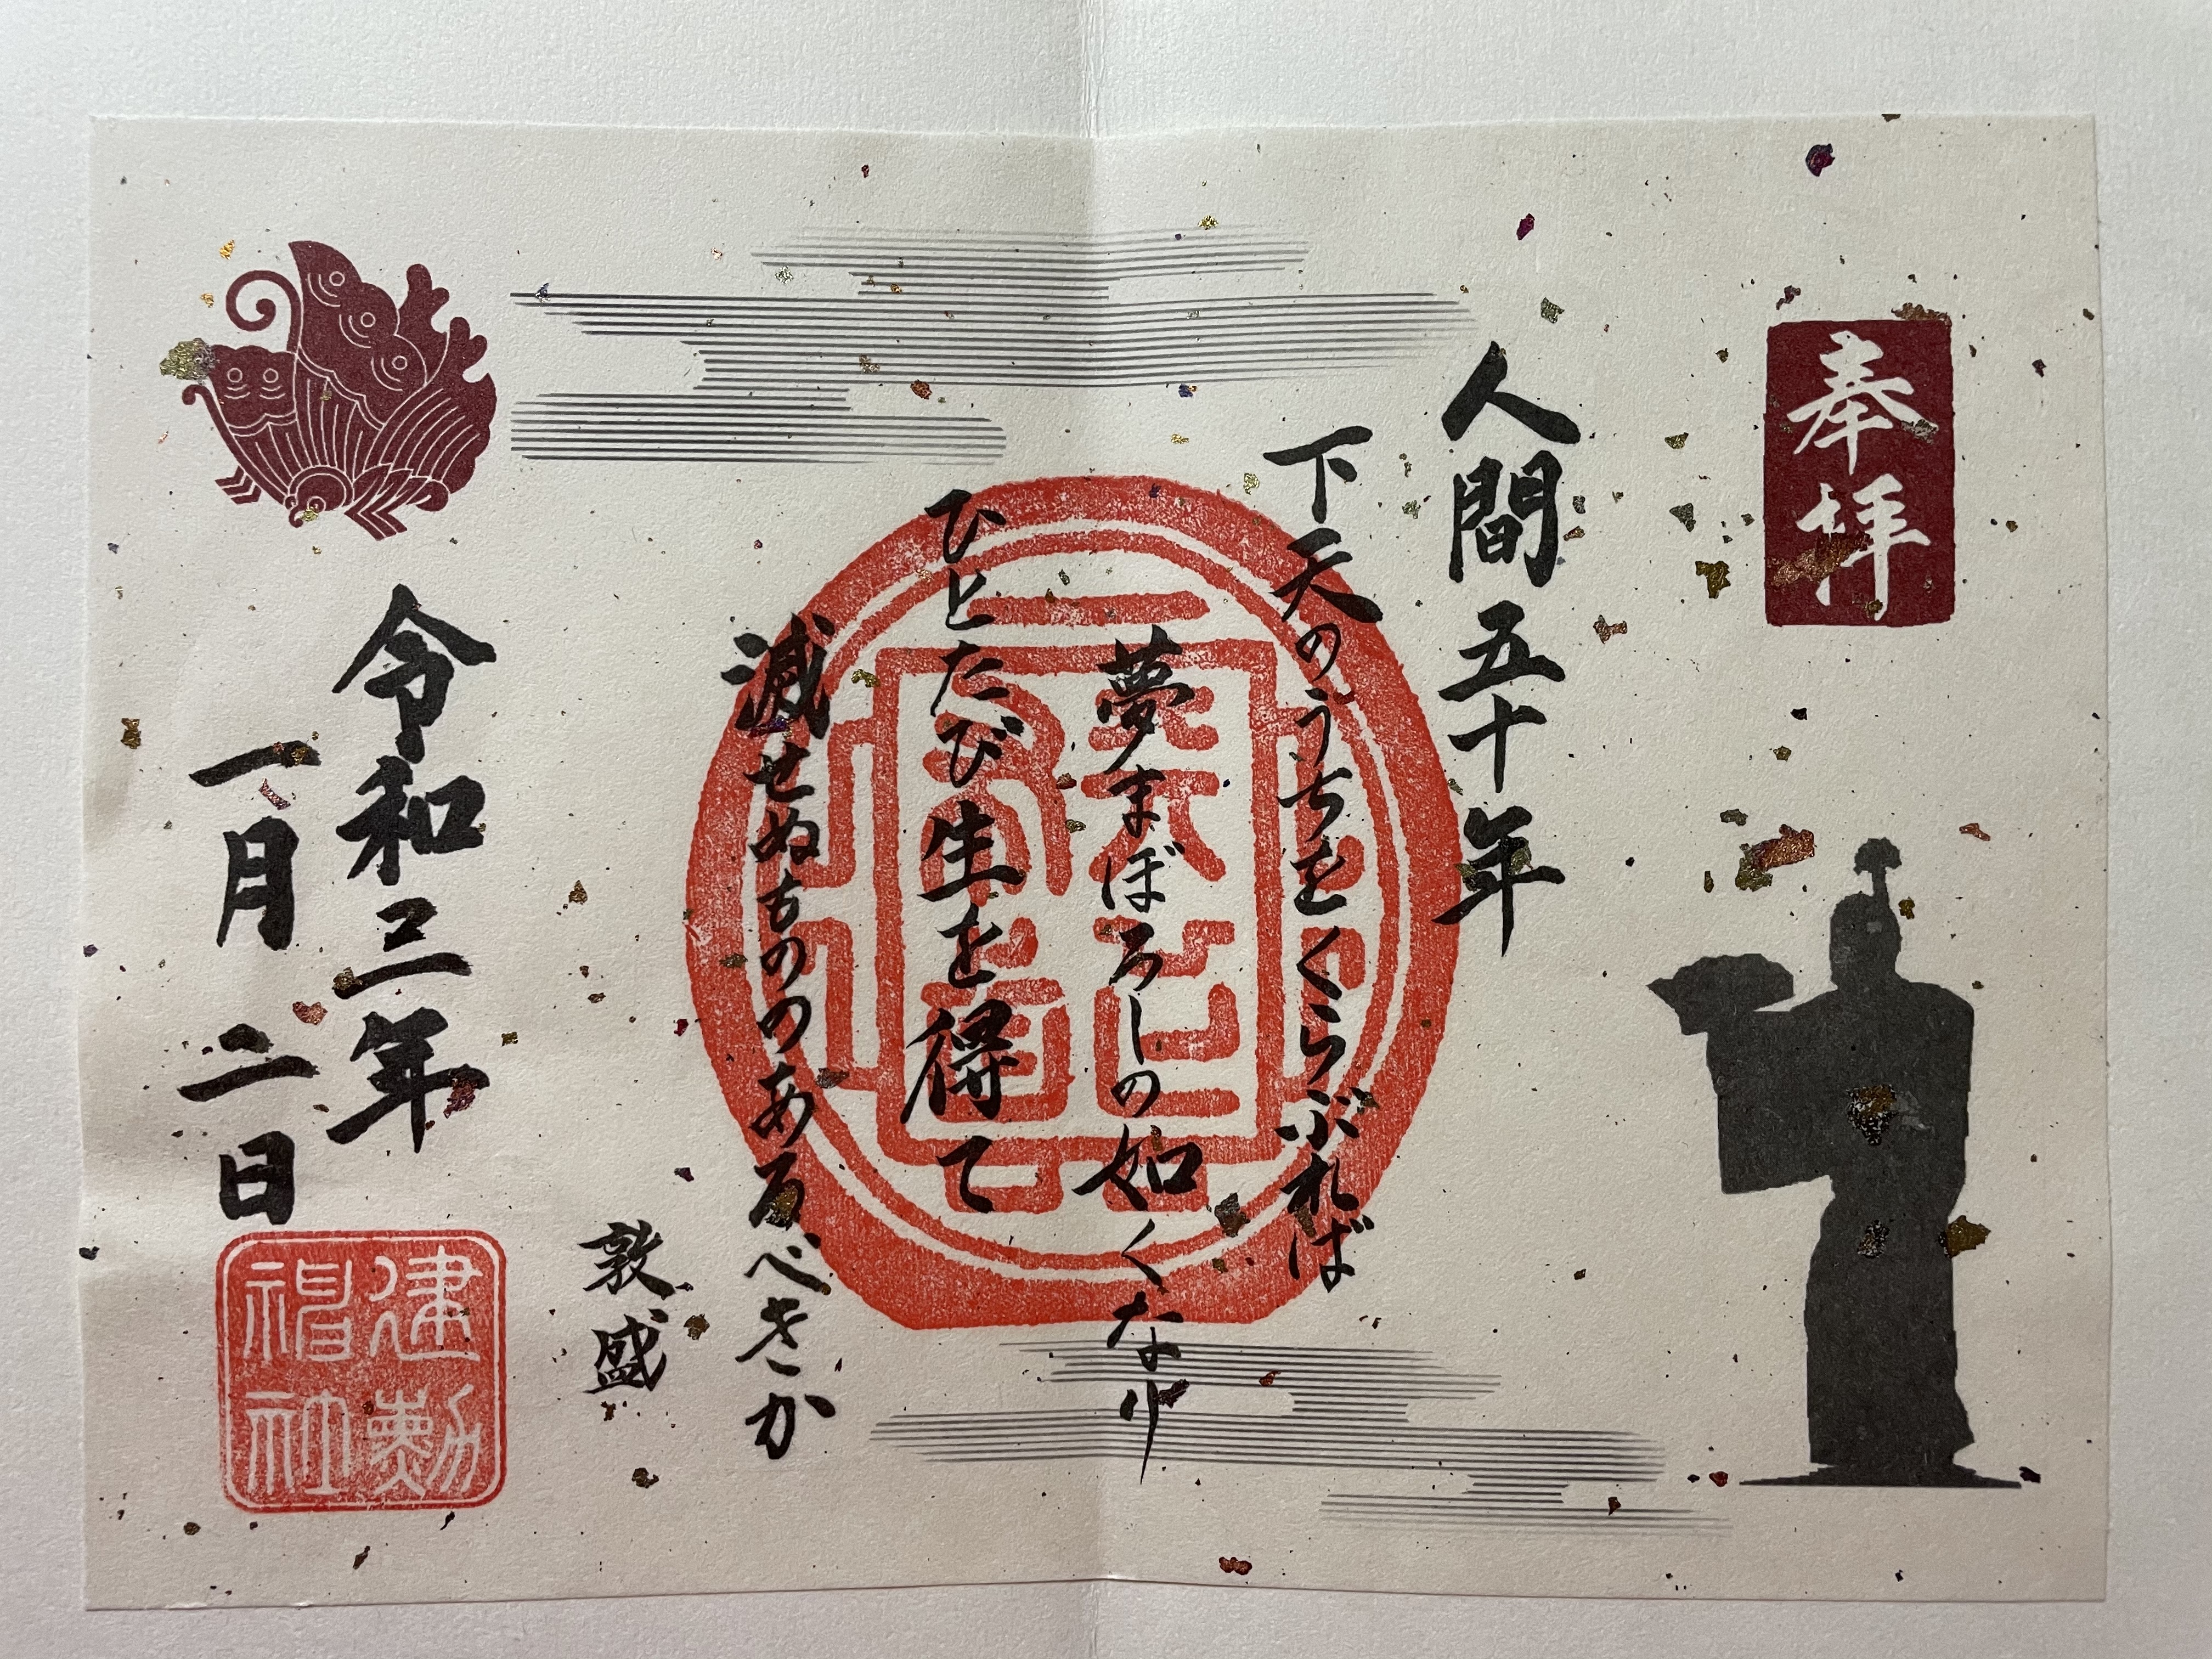 奉拝
人間五十年
下天のうちをくらぶれば
夢まぼろしの如くなり
ひとたび生を得て
滅せぬもののあるべきか
敦盛
令和三年
一月二日
建勲神社